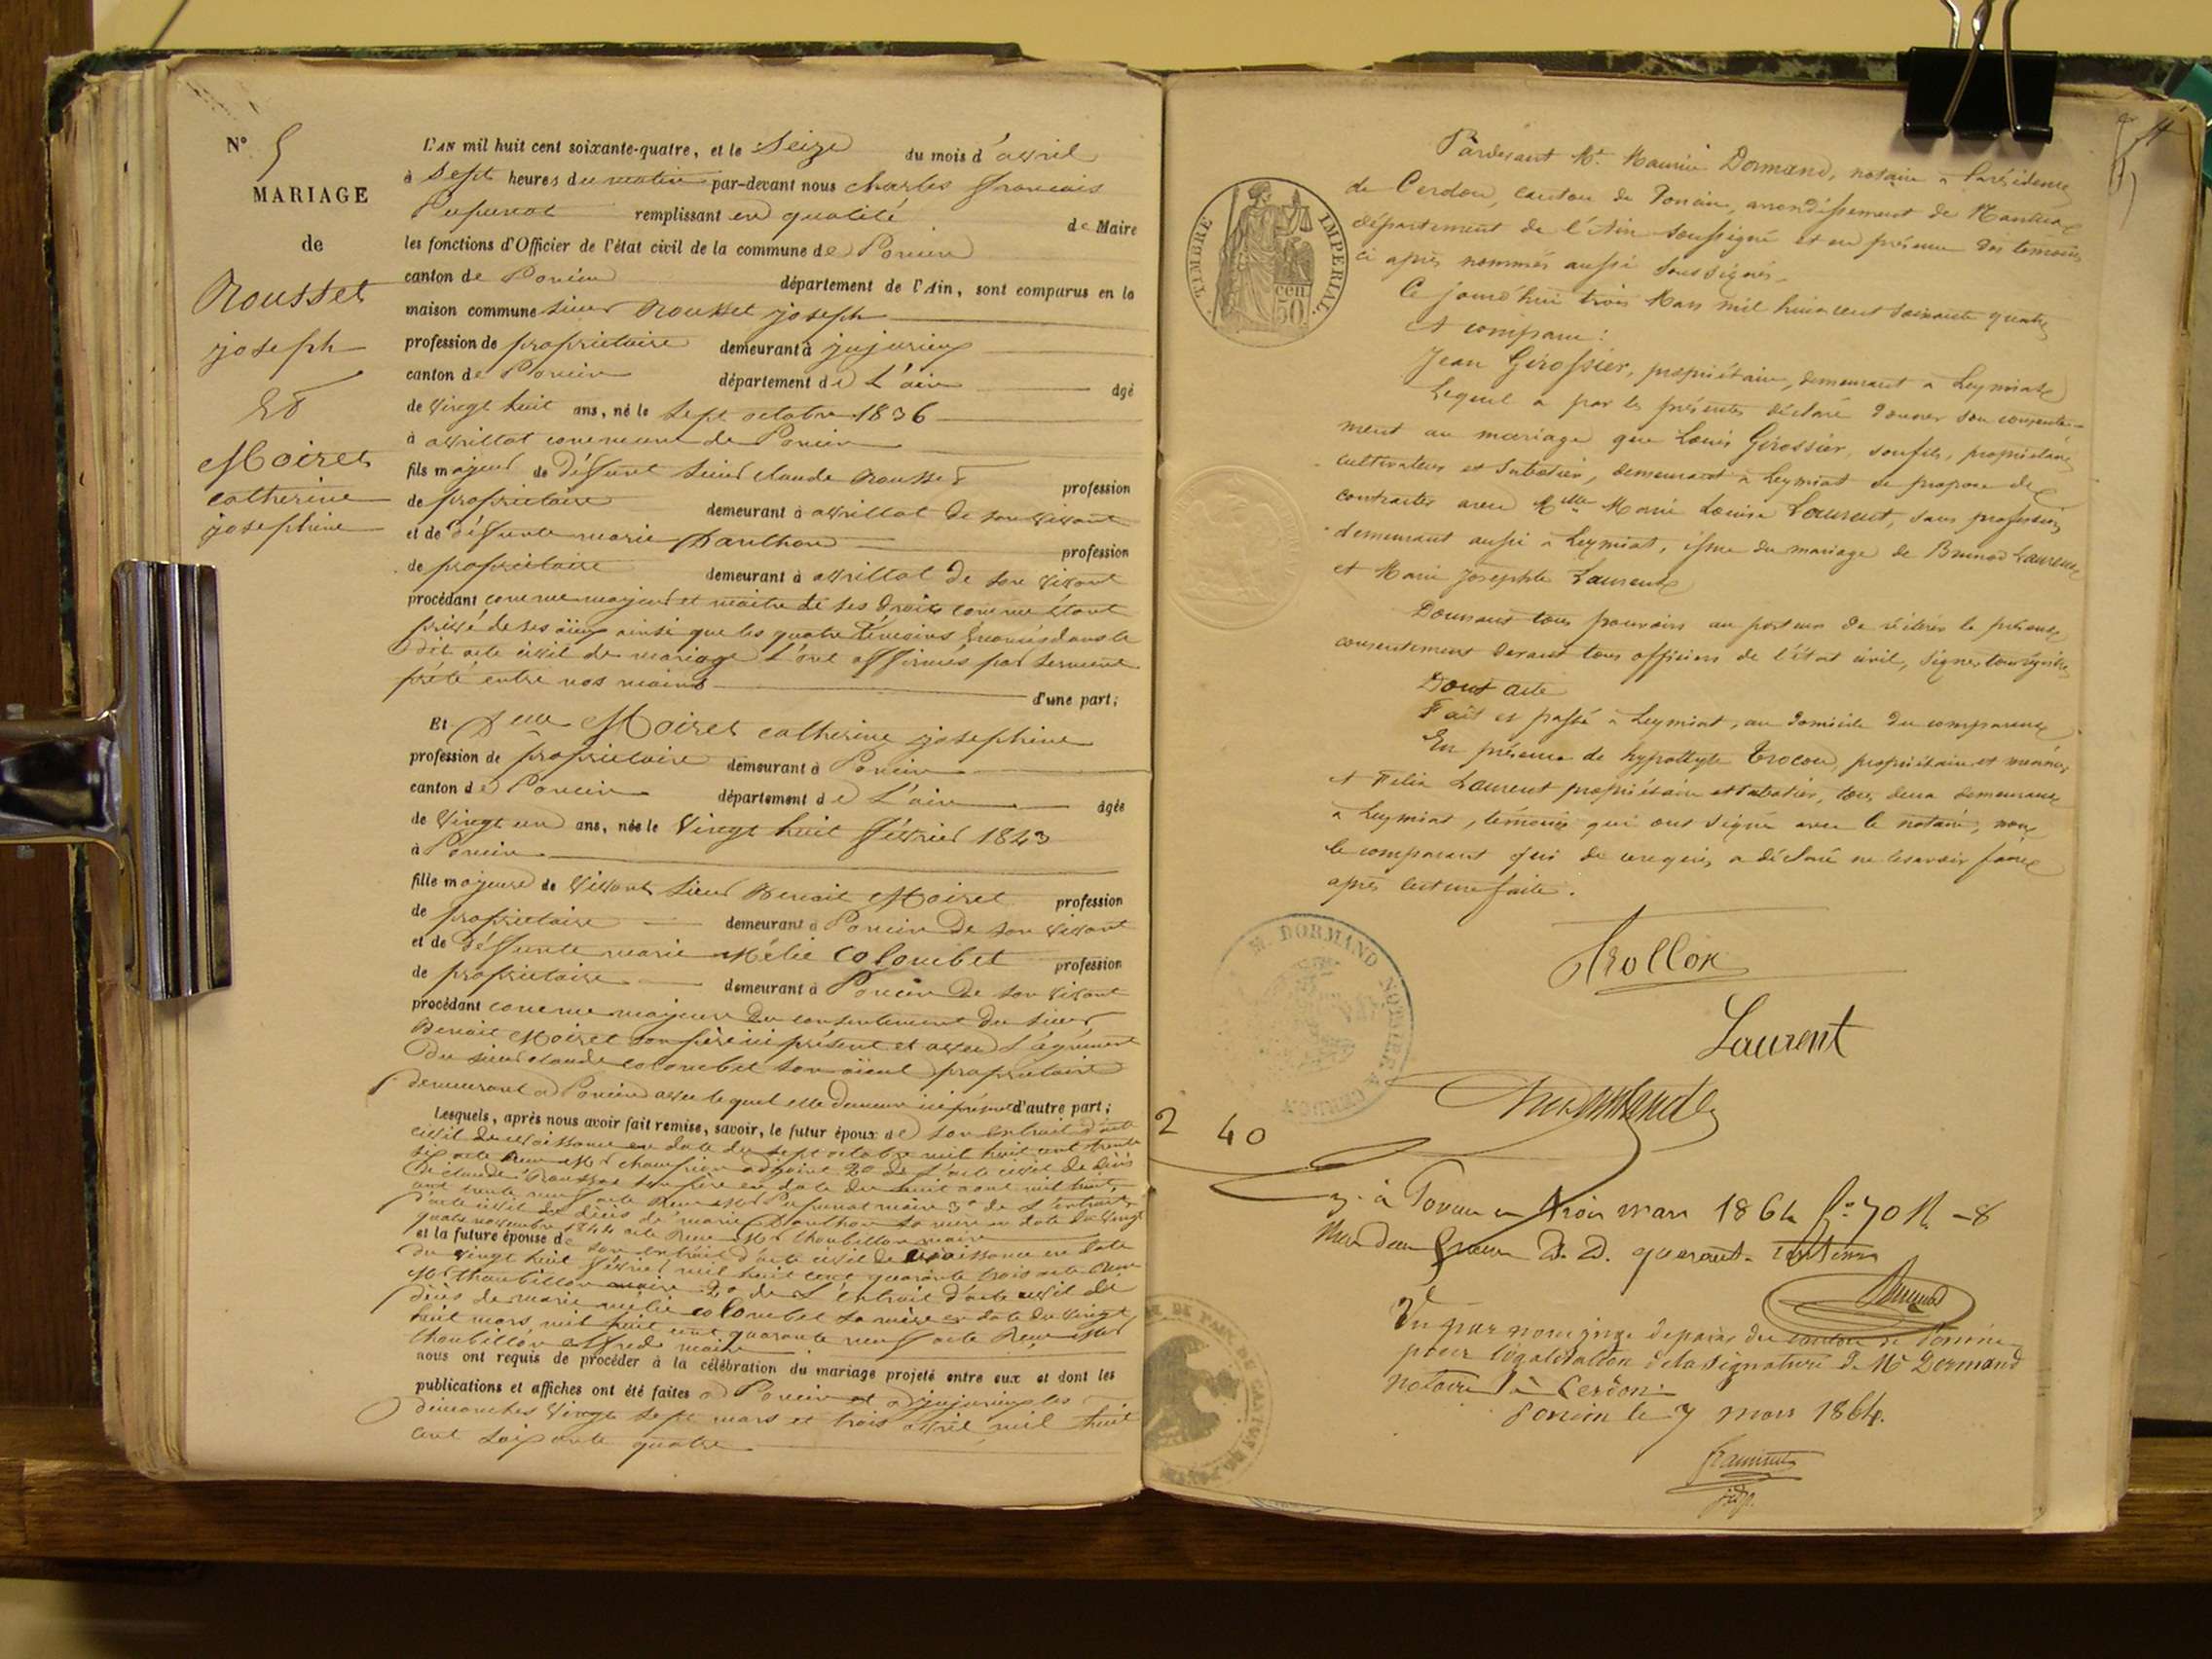 N° 5
MARIAGE
de
Rousset
joseph
Et
Moiret
catherine
josephine
L'AN mil huit cent soixante-quatre, et le Seize du mois d'avril
à Sept heures du matin par-devant nous charles francois
Pupunat remplissant en qualité de Maire
les fonctions d'Officier de l'état civil de la commune de Poncin
canton de Poncin département de l'Ain, sont comparus en la
maison commune sieur Rousset joseph
profession de propriétaire demeurant à jujurieux
canton de Poncin département de L'ain âgé
de vingt huit ans, né le Sept octobre 1836
à avrillat commune de Poncin
fils majeur de déffunt Sieur claude Rousset profession
de propriétaire demeurant à avrillat de son vivant
et de déffunte marie Danthon profession
de propriétaire demeurant à avrillat de son vivant
procédant comme majeur et maitre de ses droits comme étant
privé de ses aïeux ainsi que les quatre témoins énoncés dans le
dit acte civil de mariage l'ont affirmés par serment
prêté entre nos mains d'une part;
Et Dlle Moiret catherine josephine
profession de propriétaire demeurant à Poncin
canton de Poncin département de L'ain âgée
de Vingt un ans, née le Vingt huit février 1843
à Poncin
fille majeure de vivant Sieur Benoit Moiret profession
de propriétaire demeurant à Poncin de son vivant
et de déffunte marie Mélie colombet profession
de propriétaire demeurant à Poncin de son vivant
procédant comme majeure du consentement du sieur
Benoit Moiret son père ici présent et avec l'agrément
du sieur claude colombet son aïeul propriétaire
demeurant à Poncin avec lequel elle demeure ici présent d'autre part;
Lesquels, après nous avoir fait remise, savoir, le futur époux de son Extrait d'acte
civil de naissance en date du sept octobre mil huit cent trente
six acte Reçu Mr champion adjoint 2° de L'acte civil de décès
de claude Rousset son père en date du huit aout mil huit
cent trente neuf acte Reçu Mr Pupunat maire 3° de L'extrait
d'acte civil de décès de marie Danthon sa mère en date du vingt
quatre novembre 1844 acte Reçu Mr thoubillon maire
et la future épouse de son Extrait d'acte civil de naissance en date
du vingt huit février mil huit cent quarante trois acte Reçu
Mr thoubillon maire 2° de L'extrait d'acte civil de
décès de marie mélie colombet sa mère en date du vingt
huit mars mil huit cent quarante neuf acte Reçu Mr
thoubillon alfred maire
nous ont requis de procéder à la célébration du mariage projeté entre eux et dont les
publications et affiches ont été faites à Poncin et à jujurieux les
dimanches vingt sept mars et trois avril mil huit
cent soixante quatre
TIMBRE IMPERIAL
50 cen
Pardevant Me Maurice Dormand, notaire à la résidence
de Cerdon, canton de Poncin, arrondissement de Nantua
département de l'Ain soussigné et en présence des témoins
ci après nommés aussi soussignés
Ce jourd'hui trois Mars mil huit cent soixante quatre
A comparu:
Jean Girossier, propriétaire, demeurant à Leymiat
Lequel a par les présentes déclaré donner son consente-
ment au mariage que Louis Girossier, son fils, propriétaire
cultivateur et Sabotier, demeurant à Leymiat se propose de
contracter avec Mlle Marie Louise Laurent, sans profession
demeurant aussi à Leymiat, issue du mariage de Brunod Laurent
et Marie Josephte Laurent
Donnant tous pouvoirs au porteur de réitérer le présent
consentement devant tous officiers de l'état civil, signer tous registres
Dont acte
Fait et passé à Leymiat, au domicile du comparant
En présence de hypollyte Trocon, propriétaire et
et Félix Laurent propriétaire et Sabotier, tous deux demeurant
à Leymiat, témoins qui ont signé avec le notaire, non
le comparant qui de ce requis, a déclaré ne le savoir faire
après lecture faite.
Laurent
M. DORMAND NOTAIRE A CERDON
2 40
à Poncin le trois mars 1864 f° 70 R -8
Vu par nous juge de paix du canton de Poncin
pour légalisation de la signature de Me Dormand
notaire à Cerdon.
Poncin le 7 mars 1864.